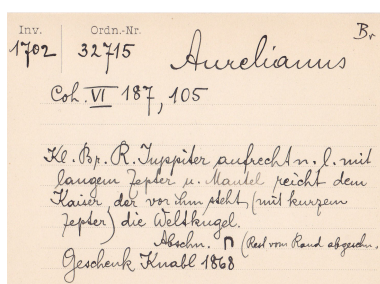 Inv. Ordn.-Nr. Br
1702 32715 Aurelianus
Coh. VI 187, 105
Kl. Br. R. Iuppiter aufrecht n. l. mit
langem Zepter u. Mantel reicht dem
Kaiser, der vor ihm steht (mit kurzem
Zepter) die Weltkugel.
Abschn. (Rest vom Rand abgeschn.
Geschenk Knabl 1868